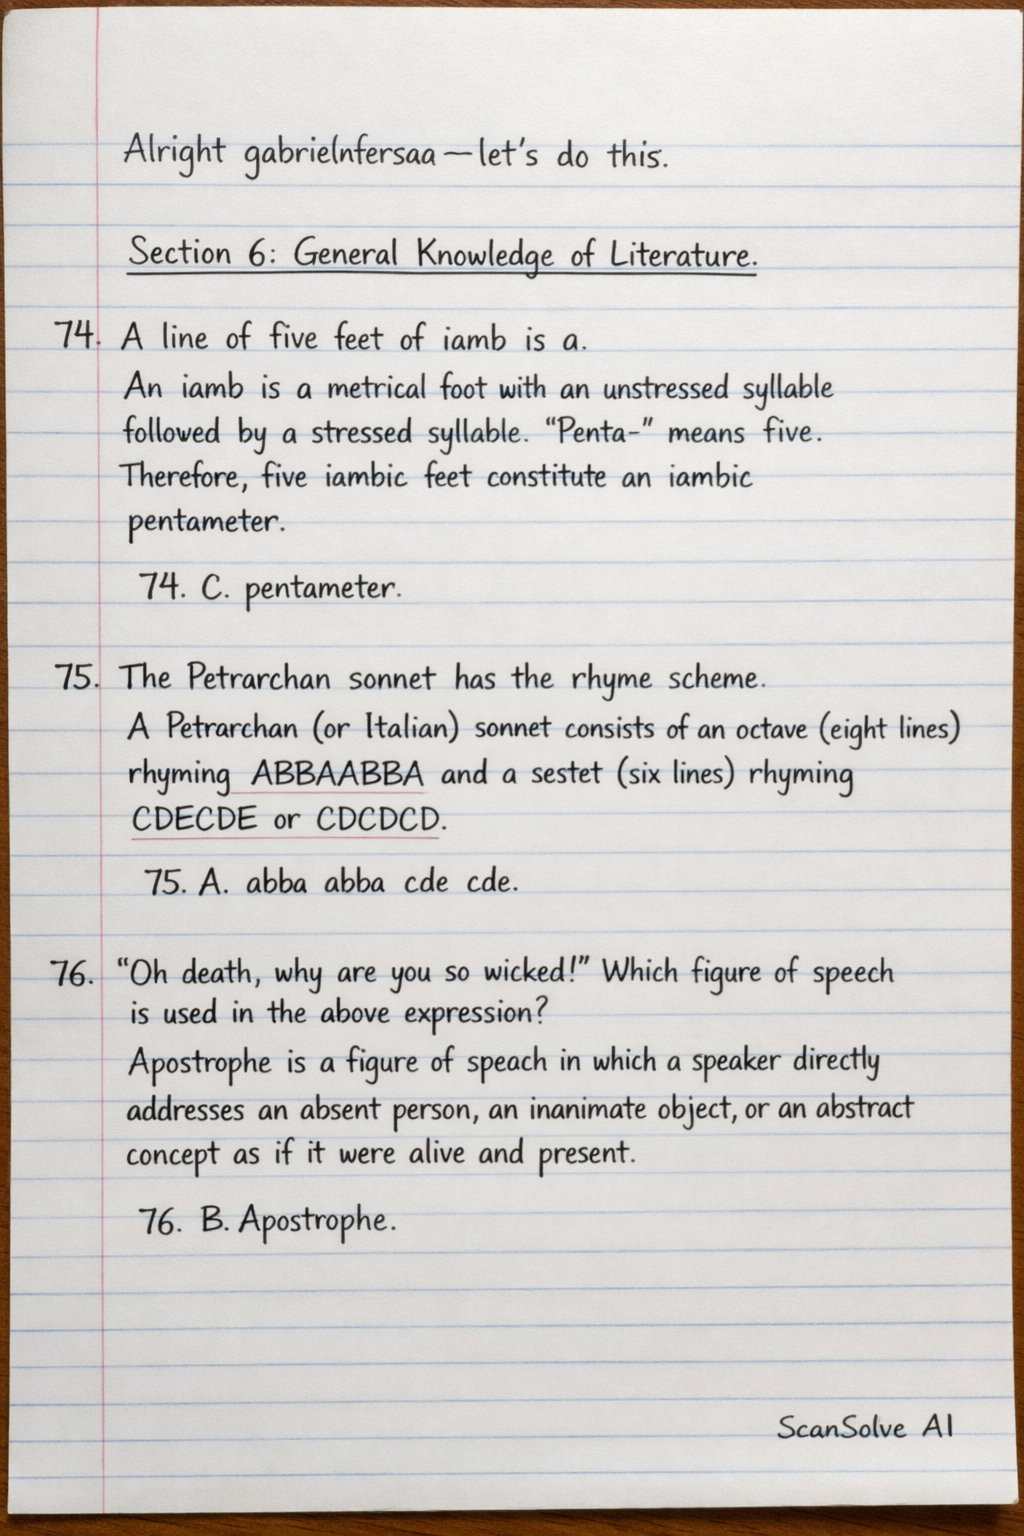 Alright gabrielnfersaa — let's do this.
Section 6: General Knowledge of Literature.
74. A line of five feet of iamb is a.
An iamb is a metrical foot with an unstressed syllable
followed by a stressed syllable. “Penta-” means five.
Therefore, five iambic feet constitute an iambic
pentameter.
74. C. pentameter.
75. The Petrarchan sonnet has the rhyme scheme.
A Petrarchan (or Italian) sonnet consists of an octave (eight lines)
rhyming ABBAABBA and a sestet (six lines) rhyming
CDECDE or CDCDCD.
75. A. abba abba cde cde.
76. “Oh death, why are you so wicked!” Which figure of speech
is used in the above expression?
Apostrophe is a figure of speach in which a speaker directly
addresses an absent person, an inanimate object, or an abstract
concept as if it were alive and present.
76. B. Apostrophe.
ScanSolve AI